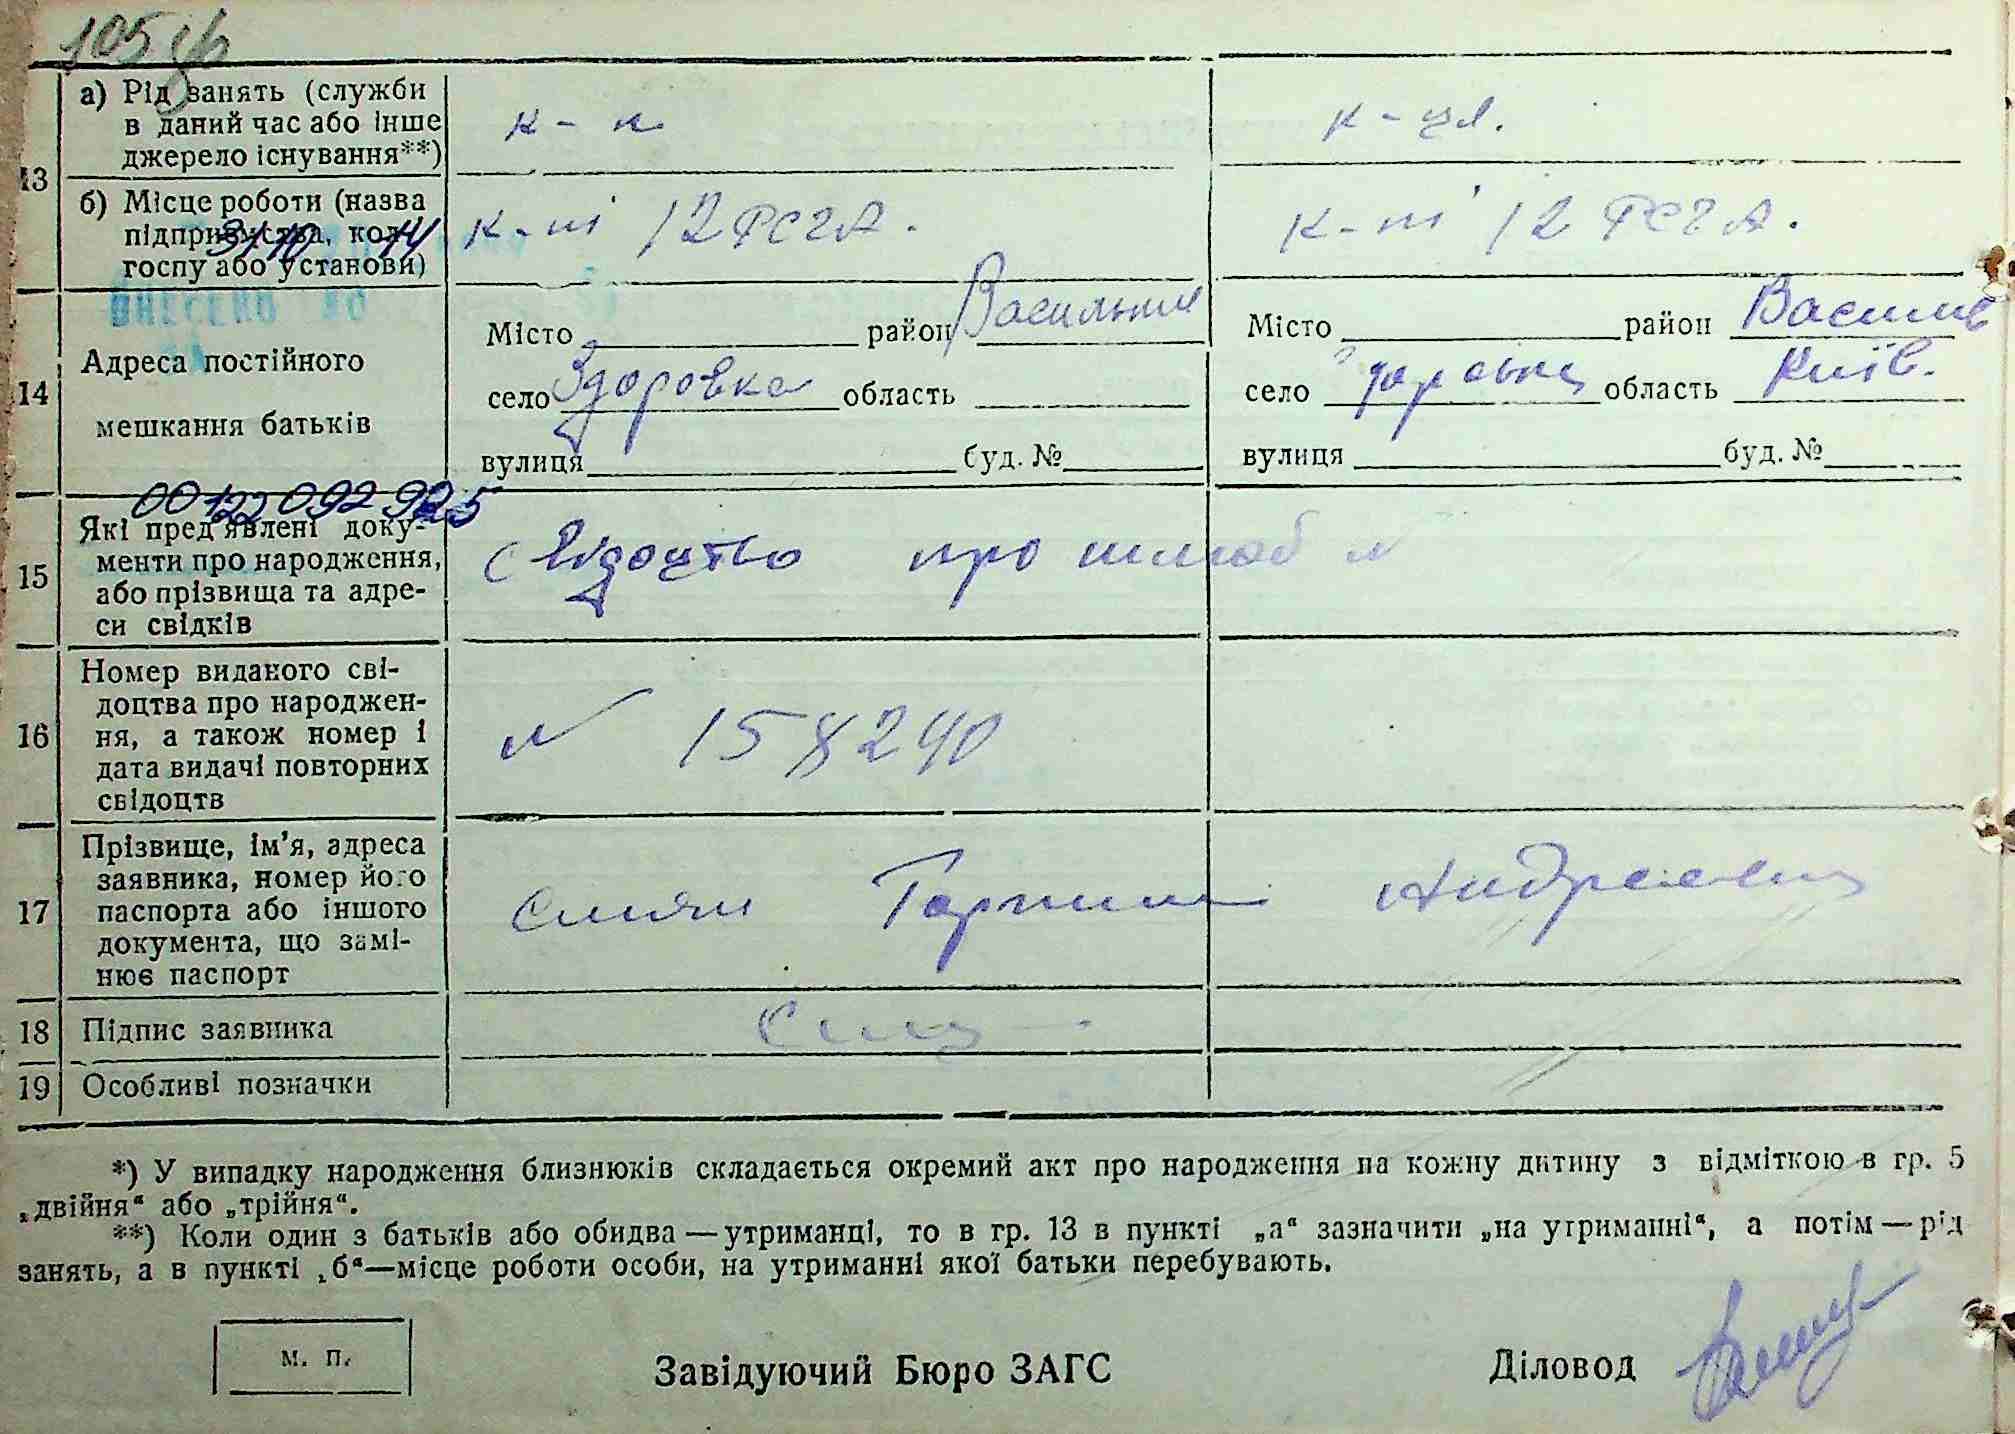 105
13
а) Рід занять (служби
в даний час або інше
джерело існування**)
к-к
к-ця.
б) Місце роботи (назва
підприємства, кол-
госпу або установи)
к-пі 12 РСЧА.
к-пі 12 РСЧА.
31/10 14
ВНЕСЕНО ДО
14
Адреса постійного
мешкання батьків
Місто район Васильків
село Здоровка область
вулиця буд. №
Місто район Васильків
село область Київ.
вулиця буд. №
00122092925
15
Які пред'явлені доку-
менти про народження,
або прізвища та адре-
си свідків
свідоцтво про шлюб №
16
Номер виданого сві-
доцтва про народжен-
ня, а також номер і
дата видачі повторних
свідоцтв
№ 158240
17
Прізвище, ім'я, адреса
заявника, номер його
паспорта або іншого
документа, що замі-
нює паспорт
18
Підпис заявника
19
Особливі позначки
*) У випадку народження близнюків складається окремий акт про народження на кожну дитину з відміткою в гр. 5
„двійня“ або „трійня“.
**) Коли один з батьків або обидва — утриманці, то в гр. 13 в пункті „а“ зазначити „на утриманні“, а потім — рід
занять, а в пункті „б“—місце роботи особи, на утриманні якої батьки перебувають.
М. П.
Завідуючий Бюро ЗАГС
Діловод